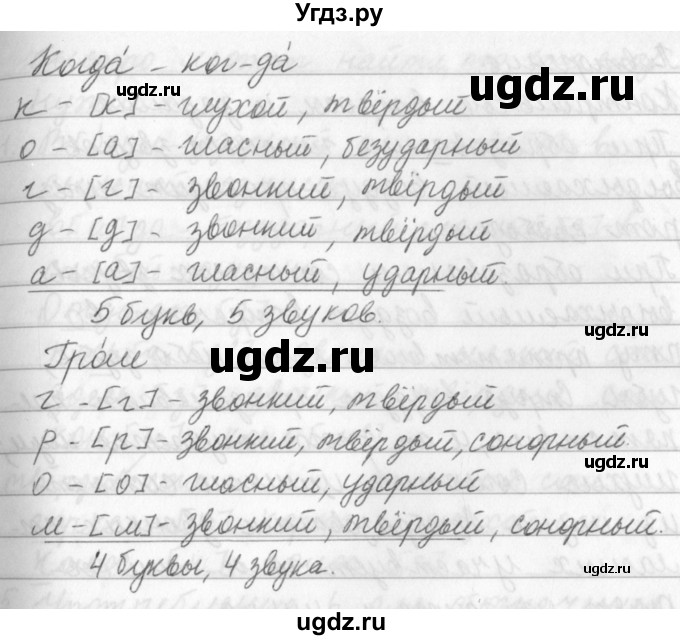 Угдз.ру
Когда́ - ког-да́
к - [к] - глухой, твёрдый
о - [а] - гласный, безударный
г - [г] - звонкий, твёрдый
д - [д] - звонкий, твёрдый
а - [а] - гласный, ударный.
5 букв, 5 звуков.
Гро́м
г - [г] - звонкий, твёрдый
р - [р] - звонкий, твёрдый, сонорный
о - [о] - гласный, ударный
м - [м] - звонкий, твёрдый, сонорный.
4 буквы, 4 звука.
ugdz.ru
ugdz.ru
ugdz.ru
ugdz.ru
ugdz.ru
ugdz.ru
ugdz.ru
ugdz.ru
ugdz.ru
ugdz.ru
ugdz.ru
ugdz.ru
ugdz.ru